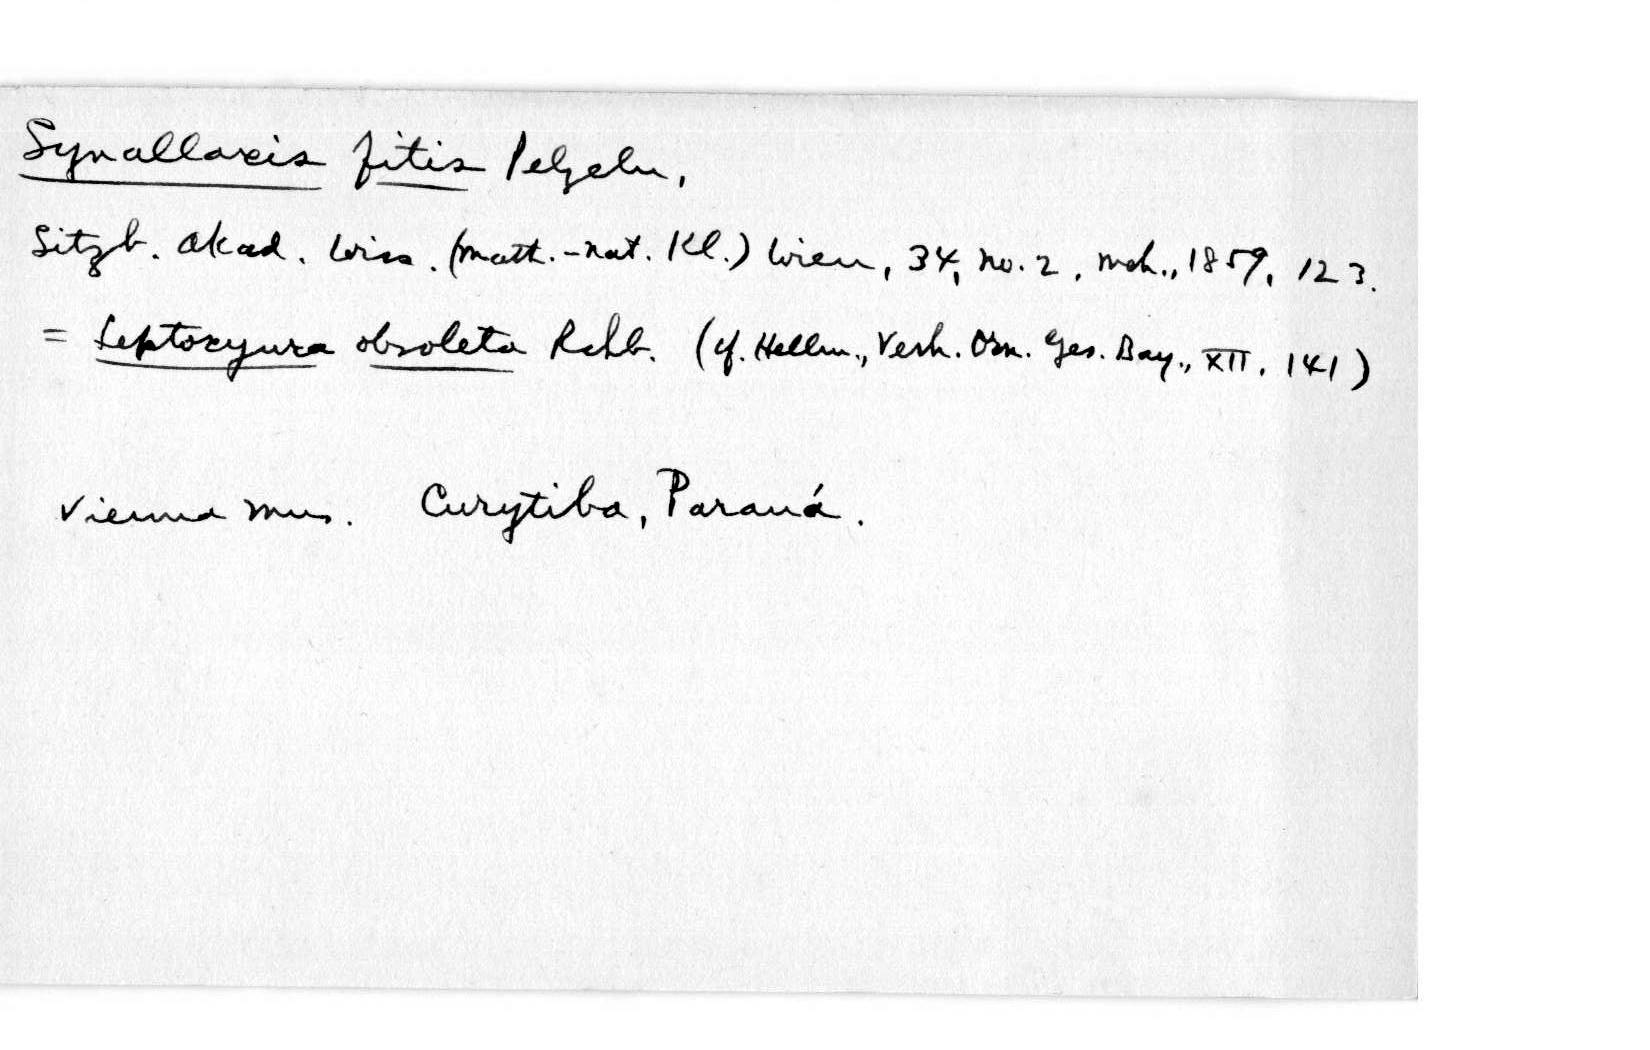 Synallaxis fitis Pelzeln,
Sitzb. Akad. Wiss. (Math.-nat. Kl.) Wien, 34, no. 2, Mch., 1859, 123.
= Leptoxyura obsoleta Rchb. (cf. Hellm., Verh. Orn. Ges. Bay., XII, 141)
Vienna Mus. Curytiba, Paraná.